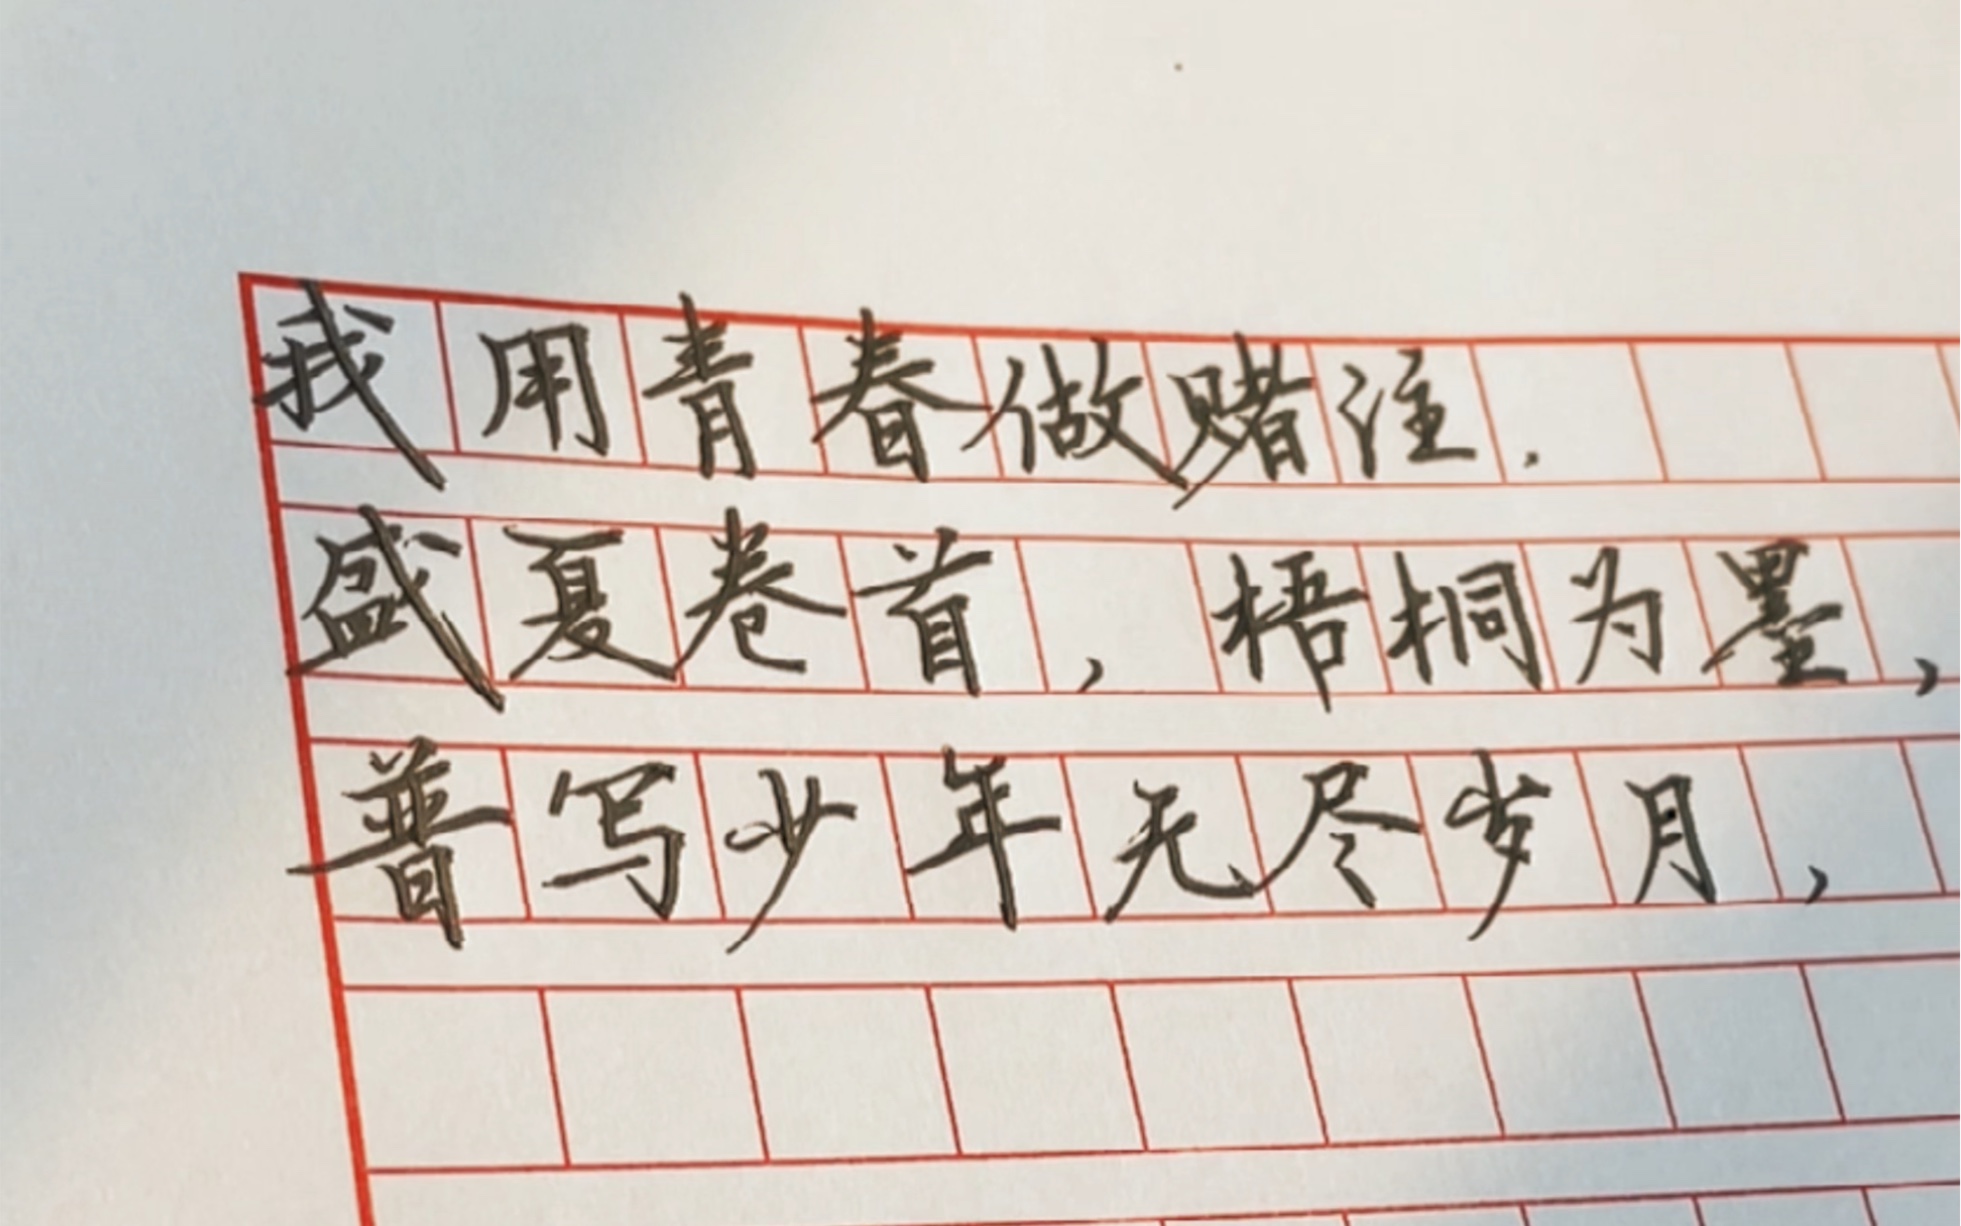 我用青春做赌注.
盛夏卷首，梧桐为墨，
普写少年无尽岁月，